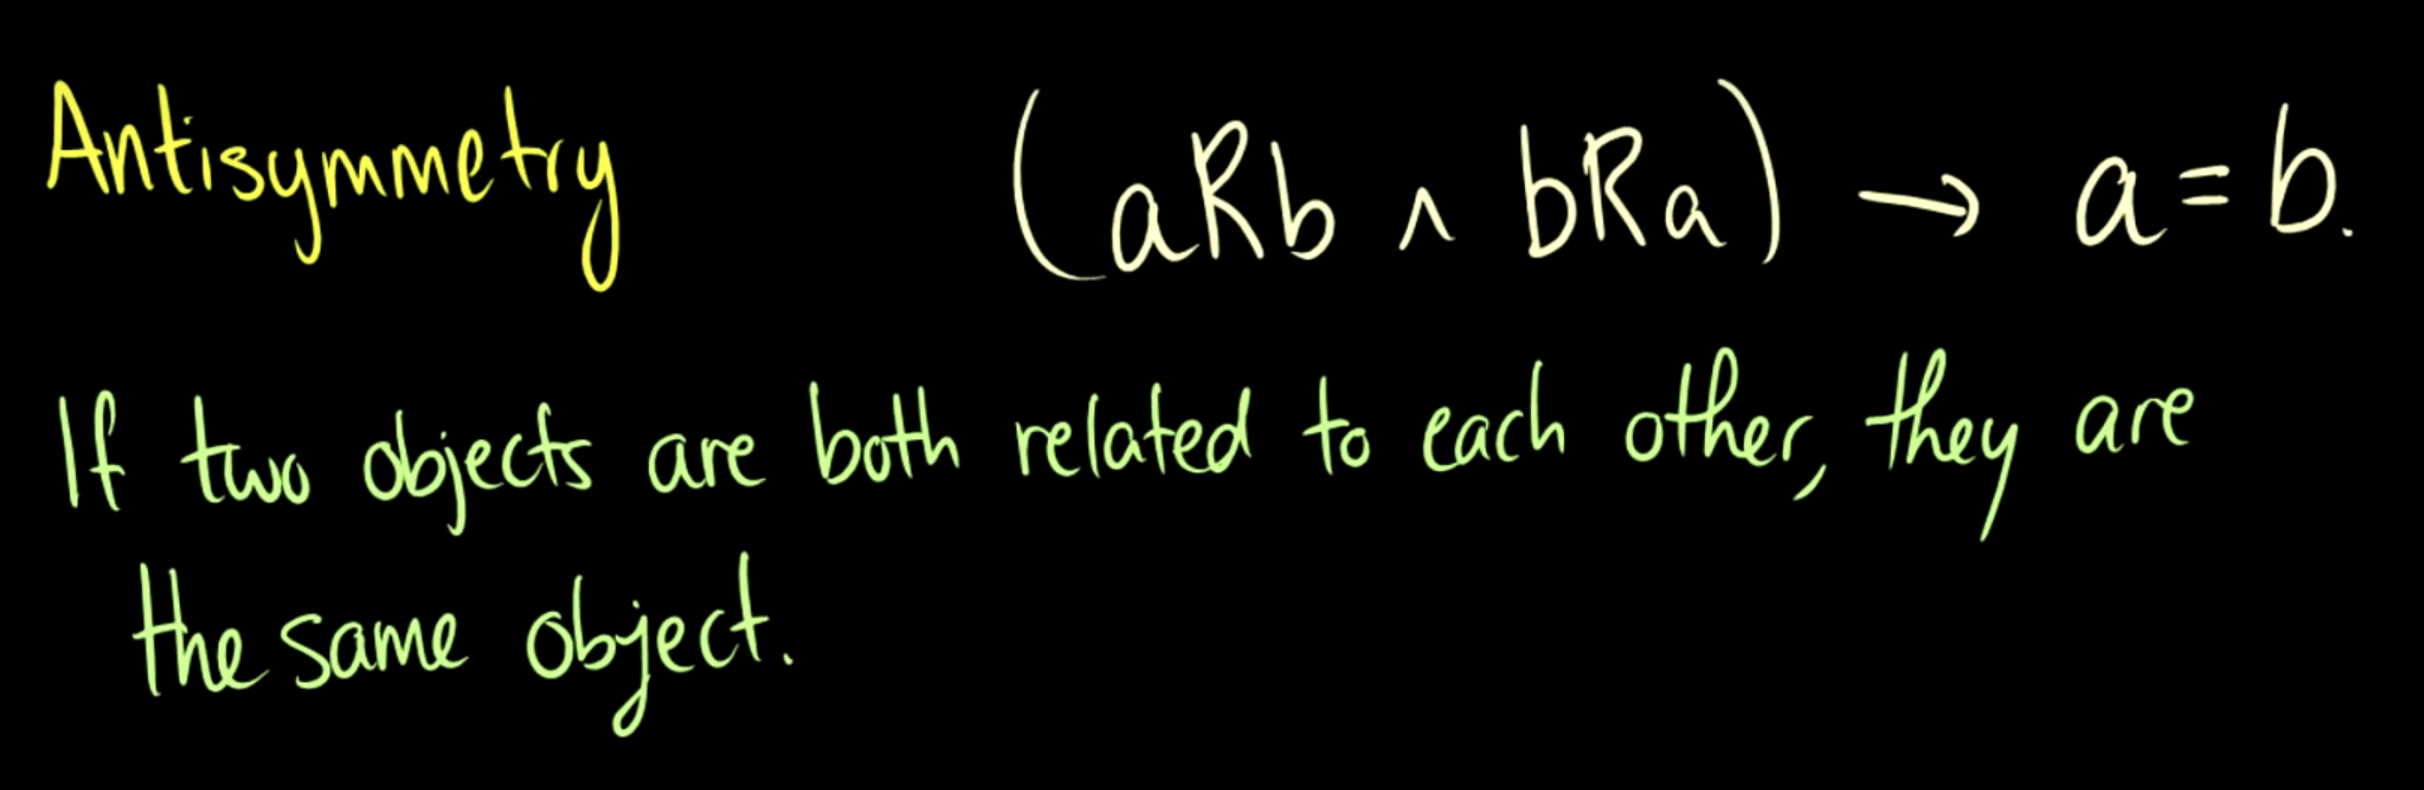 Antisymmetry (aRb ∧ bRa) → a = b.
If two objects are both related to each other, they are
the same object.